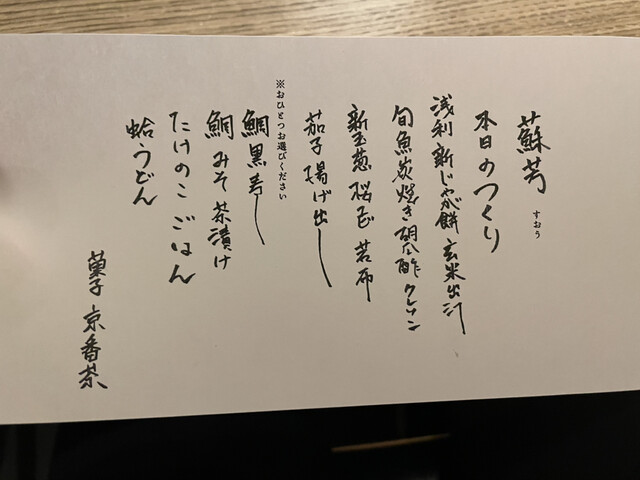 蘇芳
すおう
本日のつくり
浅利 新じゃが餅 玄米出汁
旬魚炭焼き 胡瓜酢 クレソン
新玉葱 桜エビ 若布
茄子揚げ出し
※おひとつお選びください
鯛黒寿し
鯛みそ茶漬け
たけのこごはん
蛤うどん
菓子 京番茶